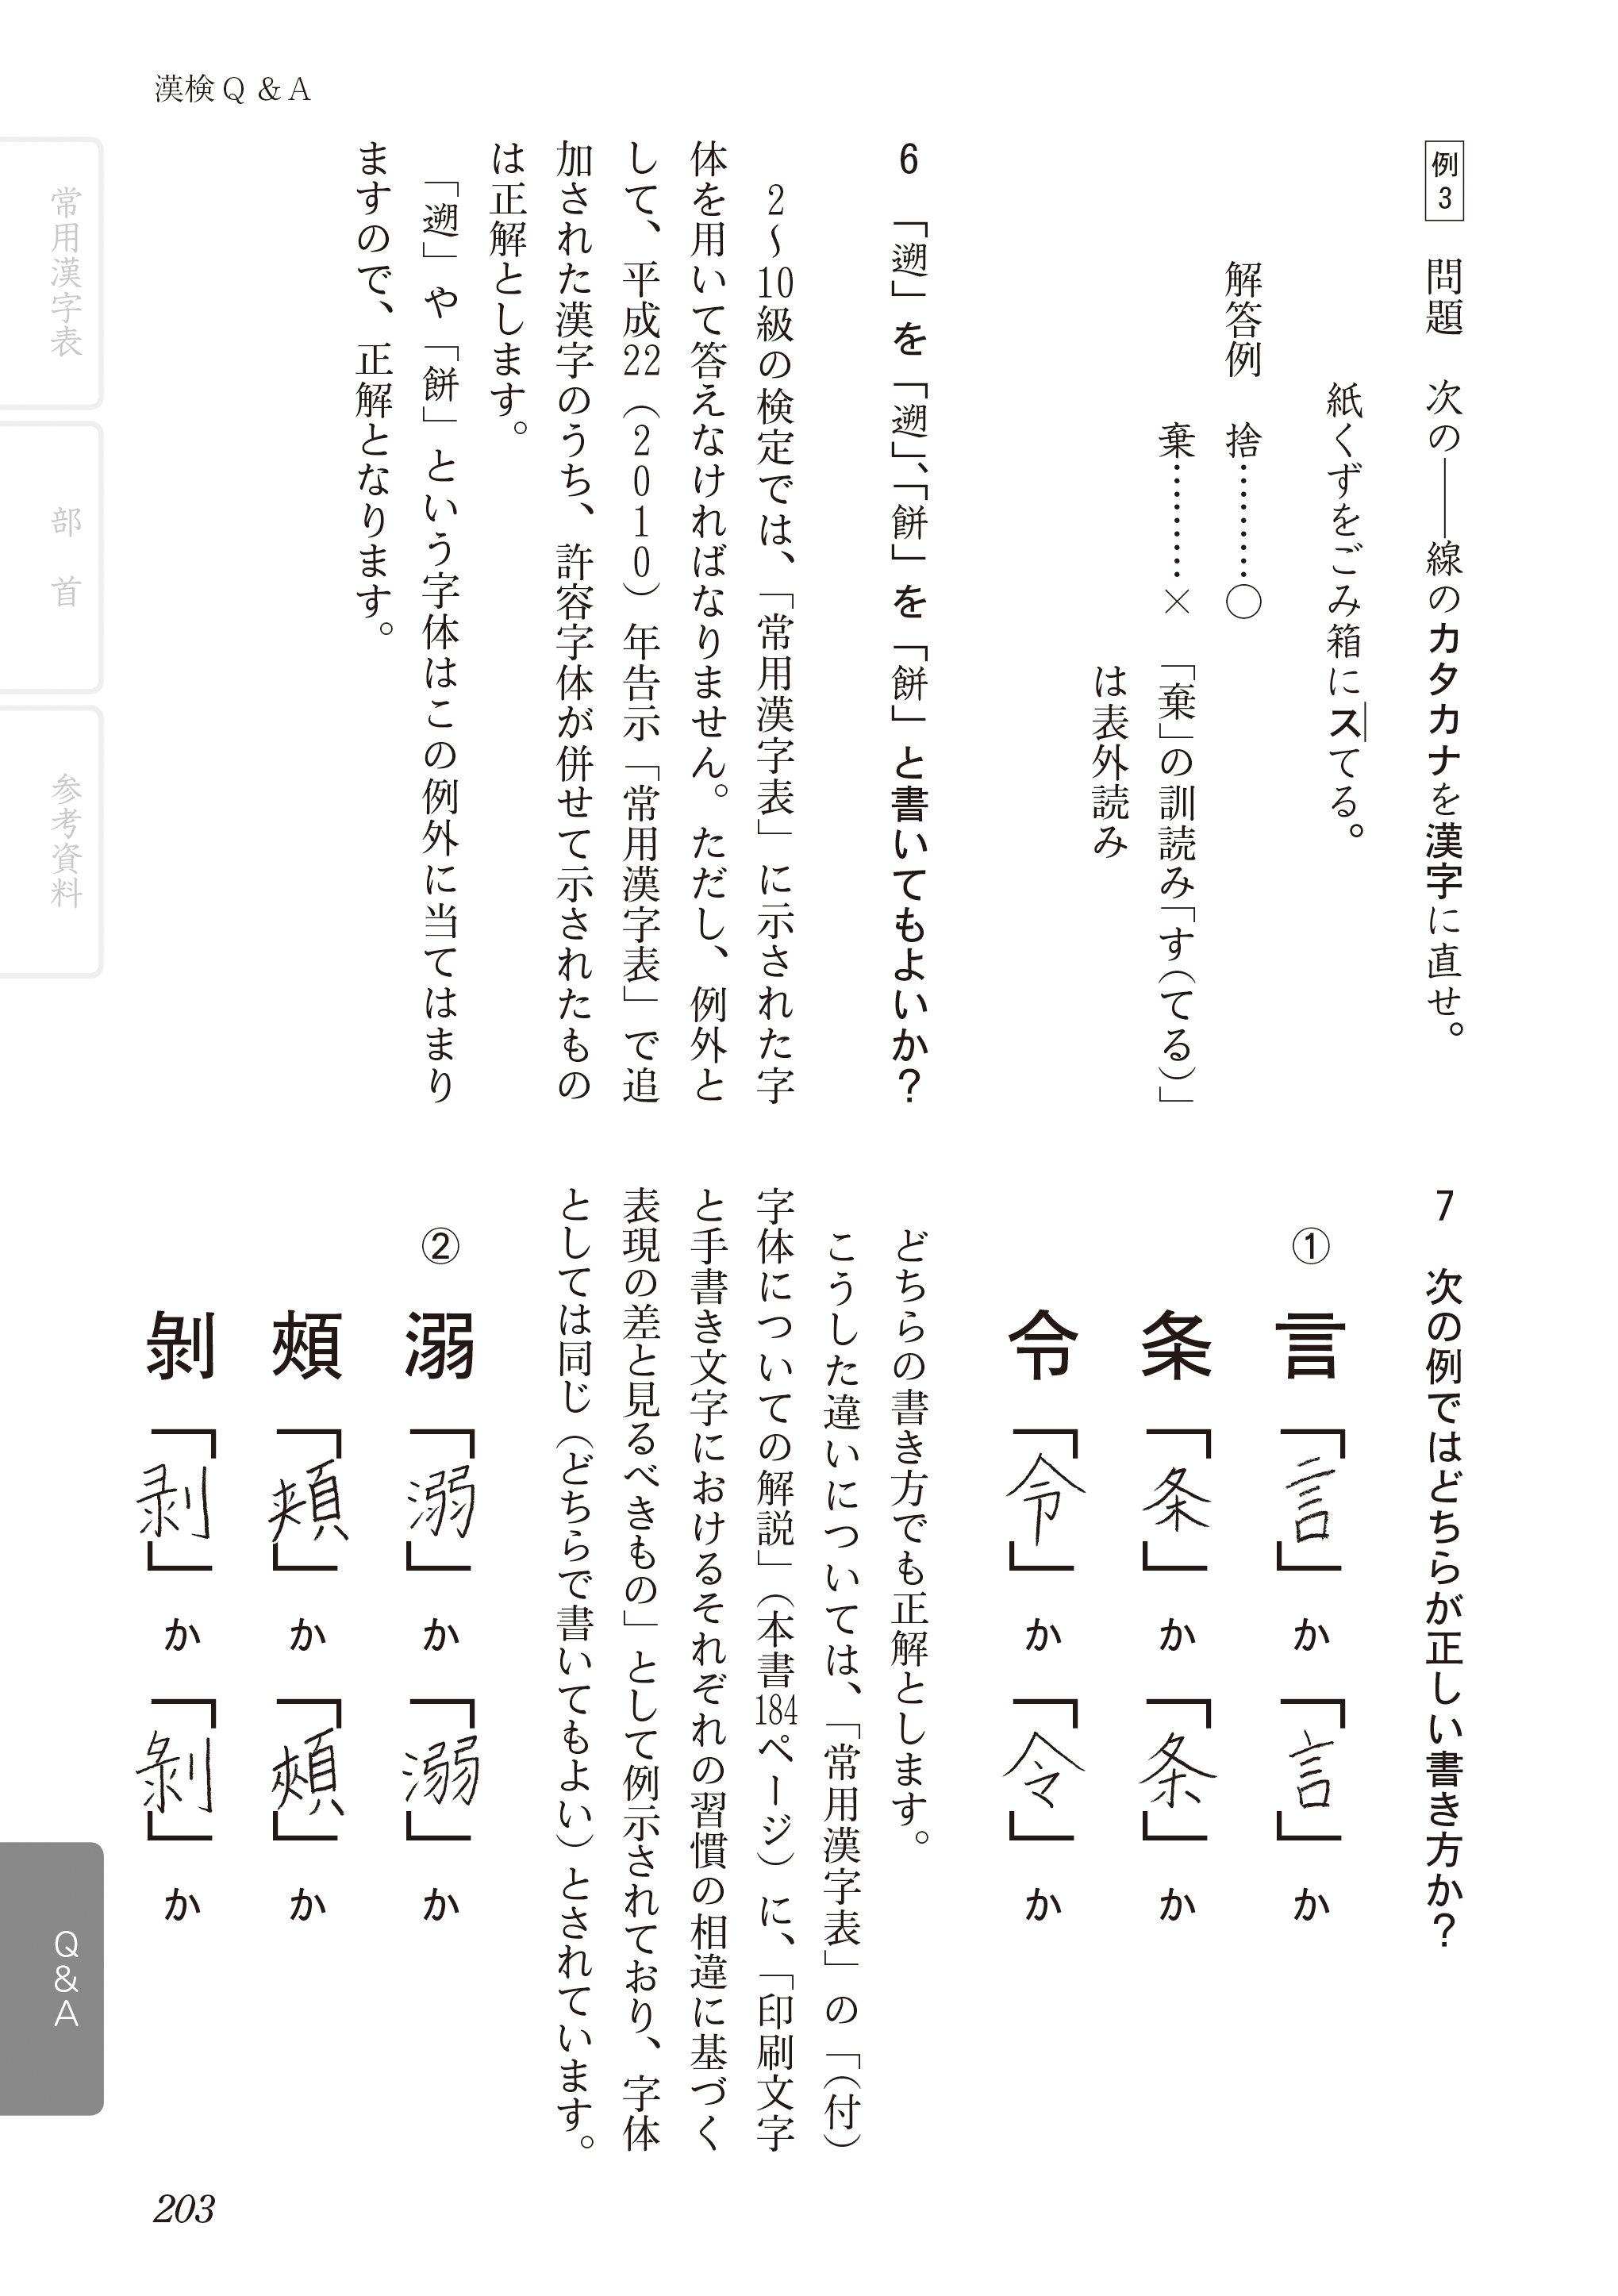 漢検Q&A
例3 問題 次の――線のカタカナを漢字に直せ。
紙くずをごみ箱にステる。
解答例 捨…………○
棄…………× 「棄」の訓読み「す(てる)」
は表外読み
6 「遡」を「遡」、「餅」を「餅」と書いてもよいか?
2~10級の検定では、「常用漢字表」に示された字
体を用いて答えなければなりません。ただし、例外と
して、平成22(2010)年告示「常用漢字表」で追
加された漢字のうち、許容字体が併せて示されたもの
は正解とします。
「遡」や「餅」という字体はこの例外に当てはまり
ますので、正解となります。
7 次の例ではどちらが正しい書き方か?
① 言「言」か「言」か
条「条」か「条」か
令「令」か「令」か
どちらの書き方でも正解とします。
こうした違いについては、「常用漢字表」の「(付)
字体についての解説」(本書184ページ)に、「印刷文字
と手書き文字におけるそれぞれの習慣の相違に基づく
表現の差と見るべきもの」として例示されており、字体
としては同じ(どちらで書いてもよい)とされています。
② 溺「溺」か「溺」か
頰「頬」か「頰」か
剝「剥」か「剝」か
常用漢字表
部首
参考資料
Q&A
203